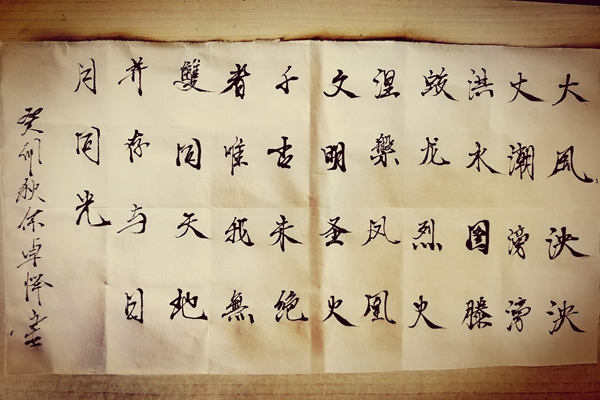 大风泱泱
大潮滂滂
洪水图腾
蛟龙烈火
涅槃凤凰
文明圣火
千古未绝
者唯我無
雙同天地
并存与日
月同光
癸卯秋余卓